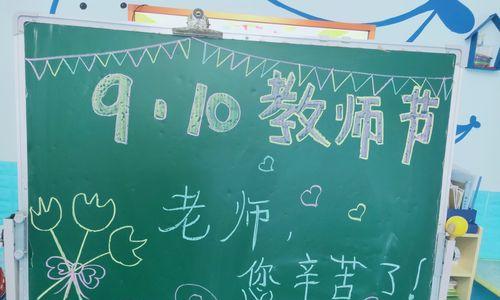 9.10教师节
老师,
您辛苦了!